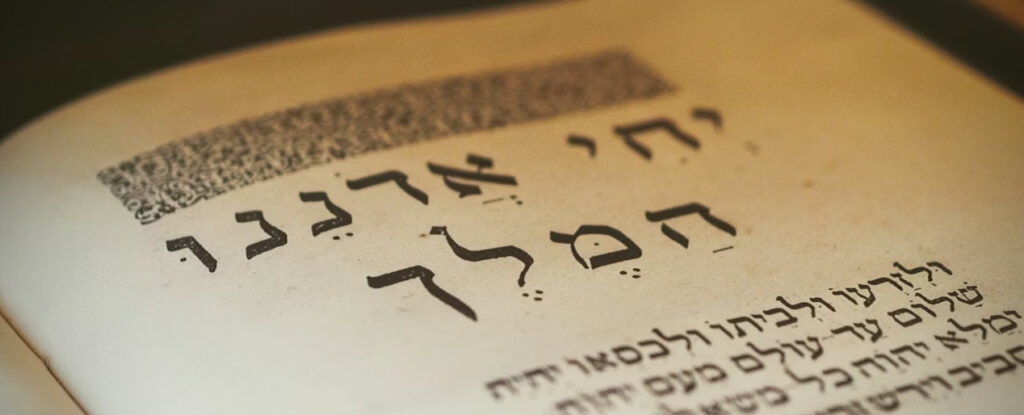 יחי אֲדנֵנוּ
הַמֶּלֶך
ולזרעו ולביתו ולכסאו יהיה
שלום עד עולם מעם יהוה
ימלא יהוה כל
סביב